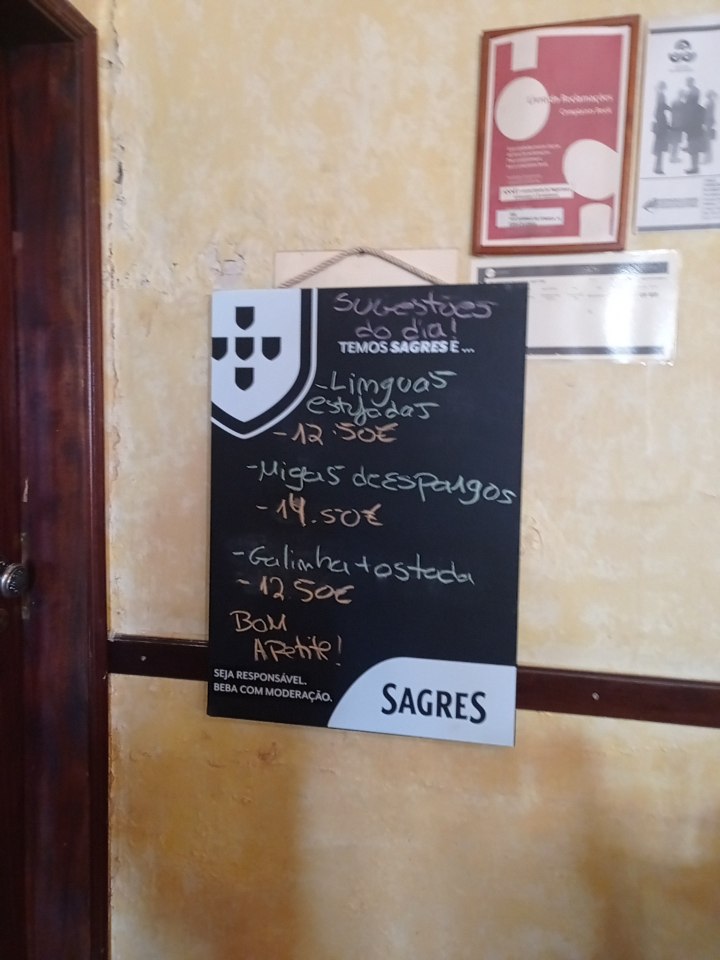 Livro de Reclamações
Sugestões
do dia!
TEMOS SAGRES E ...
- Linguas
estufadas
- 12.50€
- Migas de espargos
- 14.50€
- Galinha tostada
- 12.50€
BOM
APetite!
SEJA RESPONSÁVEL.
BEBA COM MODERAÇÃO.
SAGRES